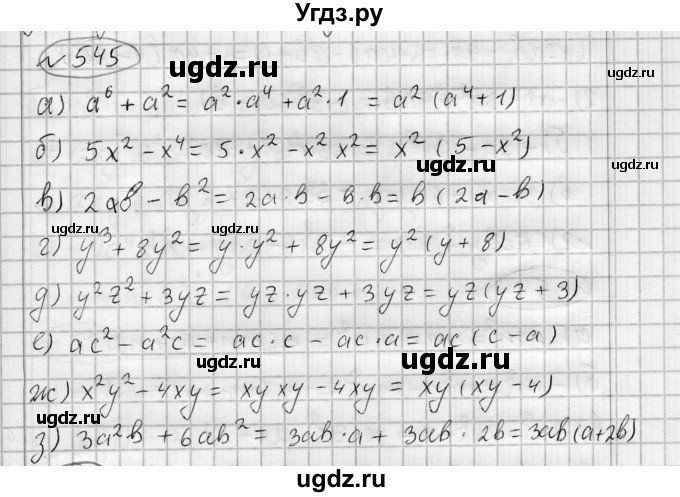 Угдз.ру
N 545
ugdz.ru
а) a⁶ + a² = a² · a⁴ + a² · 1 = a² (a⁴ + 1)
б) 5x² - x⁴ = 5 · x² - x² x² = x² (5 - x²)
ugdz.ru
в) 2ab - b² = 2a · b - b · b = b (2a - b)
ugdz.ru ugdz.ru
г) y³ + 8y² = y · y² + 8y² = y² (y + 8)
д) y²z² + 3yz = yz · yz + 3yz = yz (yz + 3)
е) ac² - a²c = ac · c - ac · a = ac (c - a)
ugdz.ru ugdz.ru
ж) x²y² - 4xy = xy xy - 4xy = xy (xy - 4)
ugdz.ru
з) 3a²b + 6ab² = 3ab · a + 3ab · 2b = 3ab (a + 2b)
ugdz.ru
ugdz.ru